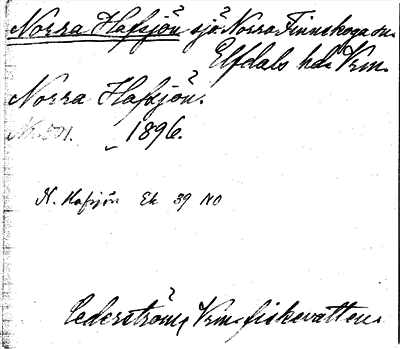 Norra Hafsjön sjö Norra Finnskoga sn
Elfdals hd Vrm.
Norra Hafsjön.
Nr. 501. 1896.
N. Hafsjön Ek 39 NO
Cederström, Vrm. fiskevatten